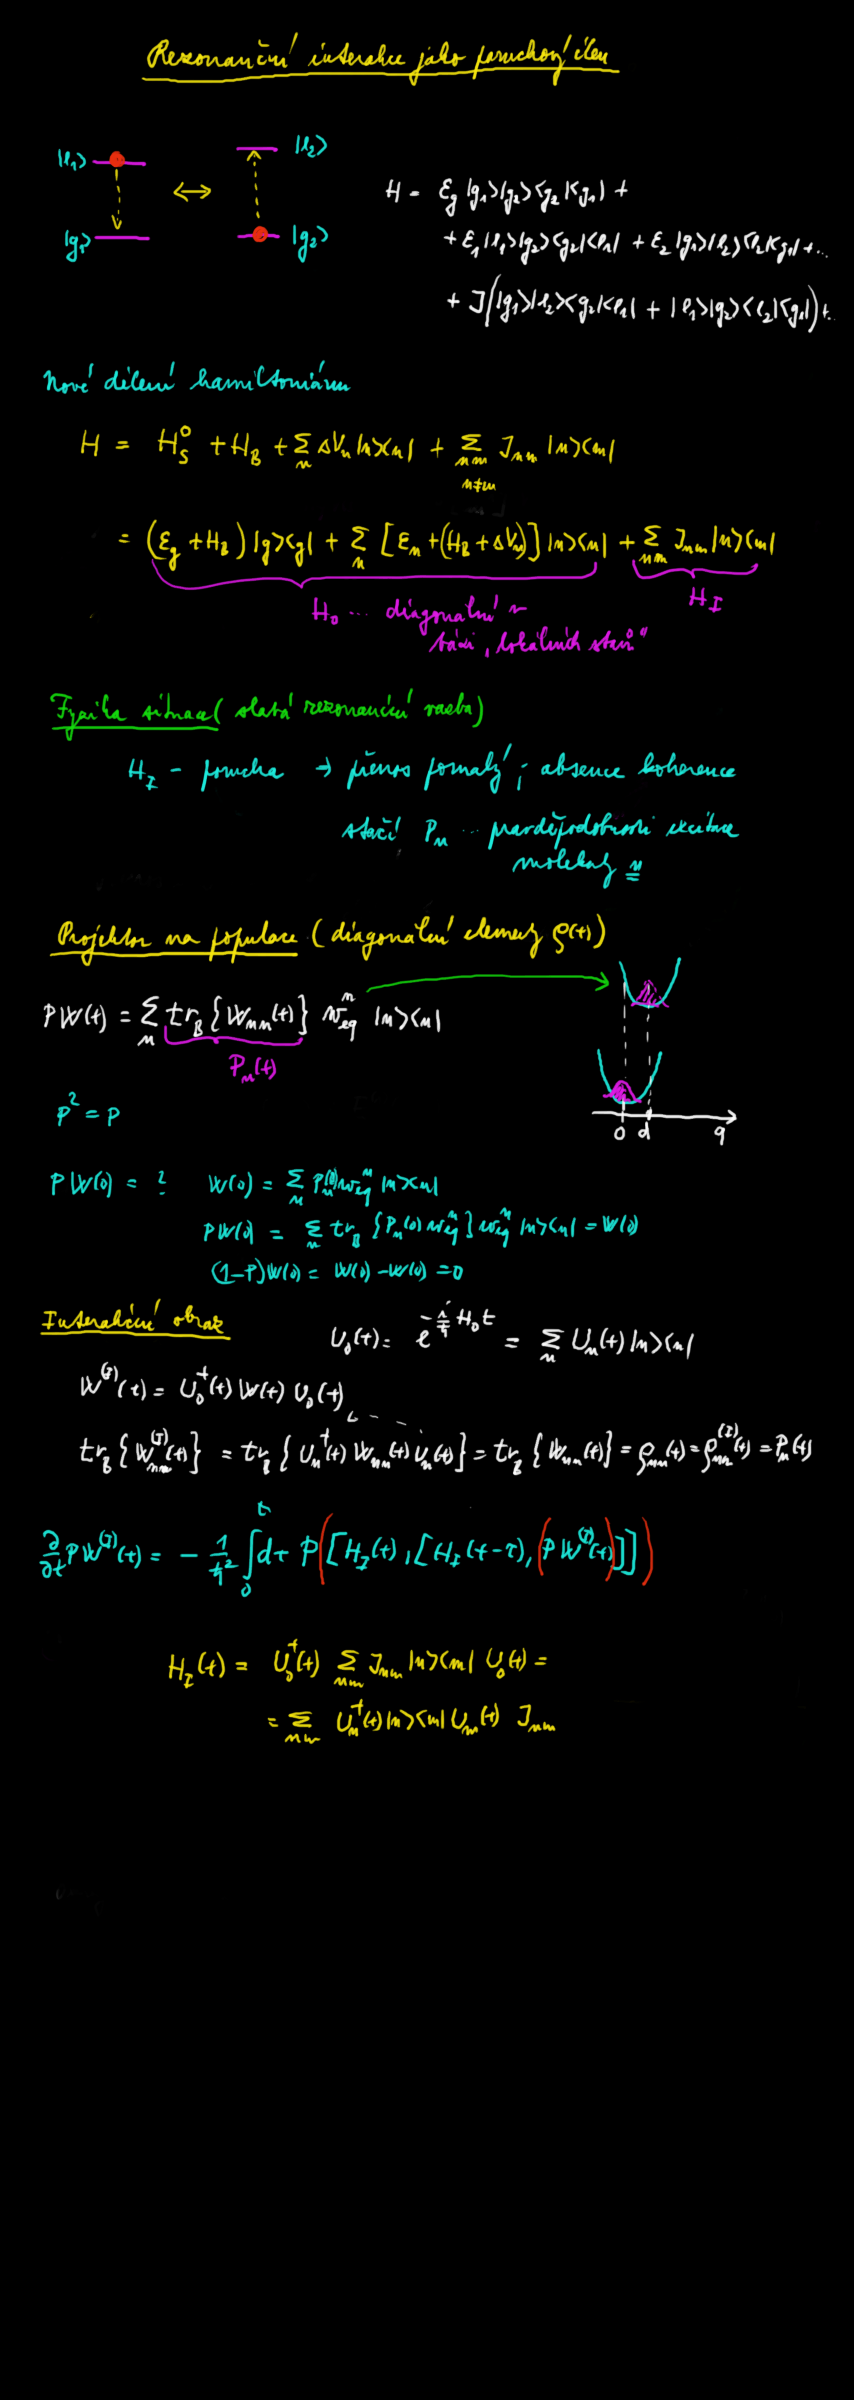 Rezonanční interakce jako poruchový člen
|e₁> |e₂>
|g₁> |g₂>
H = ε_g |g₁>|g₂><g₂|<g₁| +
+ ε₁ |e₁>|g₂><g₂|<e₁| + ε₂ |g₁>|e₂><e₂|<g₁| + ...
+ J(|g₁>|e₂><g₂|<e₁| + |e₁>|g₂><e₂|<g₁|) + ..
Nové dělení hamiltoniánu
H = H_S⁰ + H_B + Σ_n ΔV_n |n><n| + Σ_{nm n≠m} J_{nm} |n><m|
= (ε_g + H_B) |g><g| + Σ_n [ε_n + (H_B + ΔV_n)] |n><n| + Σ_{nm} J_{nm} |n><m|
H₀ ... diagonální v H_I
bázi „lokálních stavů"
Fyzika situace (slabá rezonanční vazba)
H_I - porucha → přenos pomalý ; absence koherence
stačí P_n ... pravděpodobnosti excitace
molekuly n
Projektor na populace (diagonální elementy ρ(t))
PW(t) = Σ_n tr_B {W_{nn}(t)} w_{eq}^n |n><n|
P_n(t)
P² = P
0 d q
PW(0) = ? W(0) = Σ_n P_n(0) w_{eq}^n |n><n|
PW(0) = Σ_n tr_B {P_n(0) w_{eq}^n} w_{eq}^n |n><n| = W(0)
(1-P)W(0) = W(0) - W(0) = 0
Interakční obraz U₀(t) = e^{-i/ħ H₀t} = Σ_n U_n(t) |n><n|
W^{(I)}(t) = U₀†(t) W(t) U₀(t)
tr_B {W_{nn}^{(I)}(t)} = tr_B {U_n†(t) W_{nn}(t) U_n(t)} = tr_B {W_{nn}(t)} = ρ_{nn}(t) = ρ_{nn}^{(I)}(t) = P_n(t)
∂/∂t PW^{(I)}(t) = - 1/ħ² ∫₀^t dτ P([H_I(t), [H_I(t-τ), (PW^{(I)}(t))]])
H_I(t) = U₀†(t) Σ_{nm} J_{nm} |n><m| U₀(t) =
= Σ_{nm} U_n†(t) |n><m| U_m(t) J_{nm}